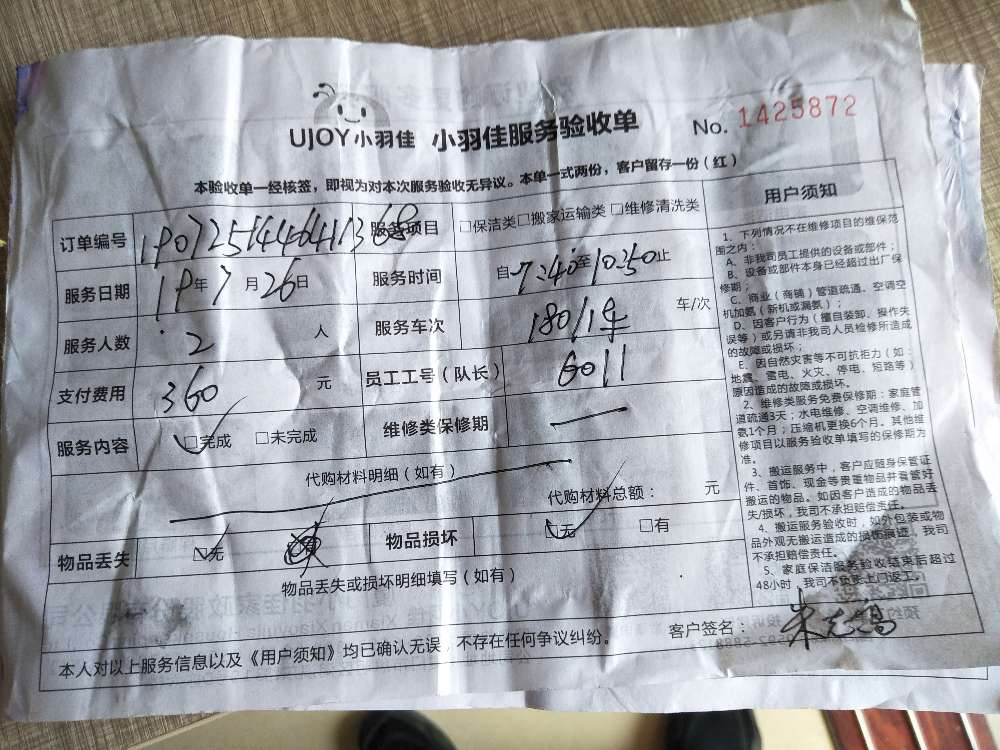 UJOY小羽佳 小羽佳服务验收单 No. 1425872
本验收单一经核签，即视为对本次服务验收无异议。本单一式两份，客户留存一份（红）
订单编号 服务项目 □保洁类□搬家运输类□维修清洗类
服务日期 19年7月26日 服务时间 自7:40至10:50止
服务人数 2人 服务车次 180/1车 车/次
支付费用 360元 员工工号（队长） 6011
服务内容 □完成 □未完成 维修类保修期 —
代购材料明细（如有）
代购材料总额： 元
物品丢失 □无 物品损坏 □无 □有
物品丢失或损坏明细填写（如有）
客户签名：
本人对以上服务信息以及《用户须知》均已确认无误，不存在任何争议纠纷。
用户须知
1、下列情况不在维修项目的维保范
围之内：
A、非我司员工提供的设备或部件；
B、设备或部件本身已经超过出厂保
修期；
C、商业（商铺）管道疏通、空调空
机加氨（新机或漏氨）；
D、因客户行为（擅自装卸、操作失
误等）或另请非我司人员检修所造成
的故障或损坏；
E、因自然灾害等不可抗拒力（如：
地震、雷电、火灾、停电、短路等）
原因造成的故障或损坏。
2、维修类服务免费保修期：家庭管
道疏通3天；水电维修、空调维修、加
氨1个月；压缩机更换6个月。其他维
修项目以服务验收单填写的保修期为
准。
3、搬运服务中，客户应随身保管证
件、首饰、现金等贵重物品并看管好
搬运的物品。如因客户造成的物品丢
失/损坏，我司不承担赔偿责任。
4、搬运服务验收时，如外包装或物
品外观无搬运造成的损伤痕迹，我司
不承担赔偿责任。
5、家庭保洁服务验收结束后超过
48小时，我司不负责上门返工。